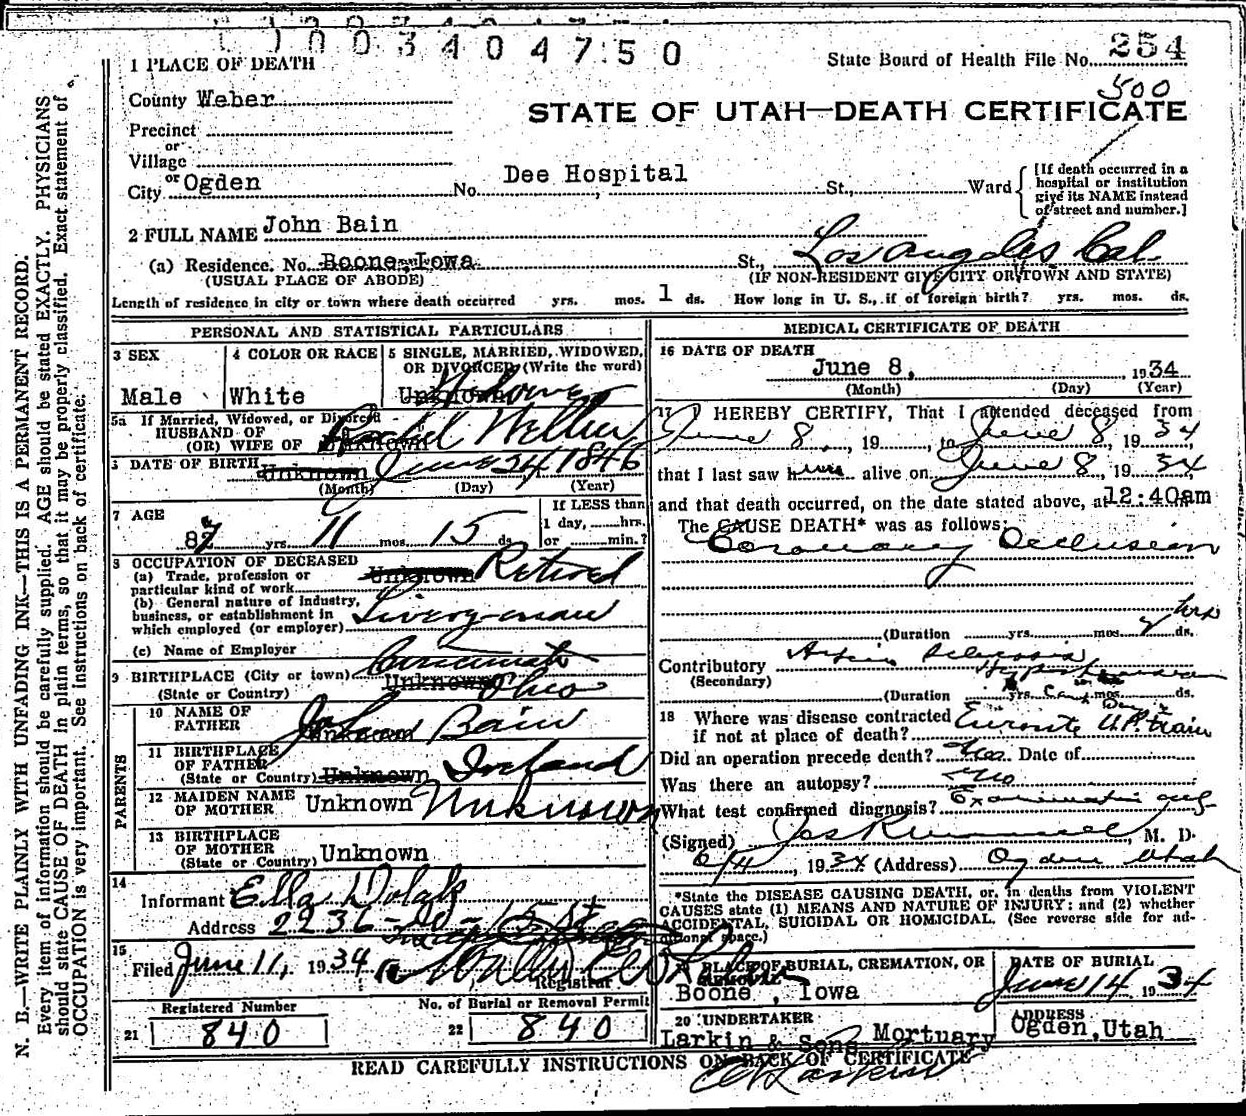 1003404750
State Board of Health File No. 254
500
1 PLACE OF DEATH
County Weber
STATE OF UTAH—DEATH CERTIFICATE
Precinct
or
Village
or
City Ogden No. Dee Hospital St., Ward
[If death occurred in a hospital or institution give its NAME instead of street and number.]
2 FULL NAME John Bain
(a) Residence. No. Boone, Iowa St., Los Angeles Cal.
(USUAL PLACE OF ABODE) (IF NON-RESIDENT GIVE CITY OR TOWN AND STATE)
Length of residence in city or town where death occurred yrs. mos. 1 ds. How long in U. S., if of foreign birth? yrs. mos. ds.
PERSONAL AND STATISTICAL PARTICULARS
3 SEX
Male
4 COLOR OR RACE
White
5 SINGLE, MARRIED, WIDOWED, OR DIVORCED (Write the word)
Unknown Widower
5a If Married, Widowed, or Divorced
HUSBAND OF
(OR) WIFE OF Unknown Rachel
6 DATE OF BIRTH Unknown June 24, 1846
(Month) (Day) (Year)
7 AGE
87 yrs. 11 mos. 15 ds.
If LESS than 1 day, hrs. or min.?
8 OCCUPATION OF DECEASED
(a) Trade, profession or particular kind of work Unknown Retired
(b) General nature of industry, business, or establishment in which employed (or employer) Liveryman
(c) Name of Employer
9 BIRTHPLACE (City or town) Unknown Cincinnati
(State or Country) Ohio
PARENTS
10 NAME OF FATHER Unknown John Bain
11 BIRTHPLACE OF FATHER
(State or Country) Unknown Ireland
12 MAIDEN NAME OF MOTHER Unknown Unknown
13 BIRTHPLACE OF MOTHER
(State or Country) Unknown
14
Informant Ella Dolak
Address 2236
15
Filed June 11, 1934
Registrar
Registered Number
21 840
No. of Burial or Removal Permit
22 840
MEDICAL CERTIFICATE OF DEATH
16 DATE OF DEATH
June 8, 1934
(Month) (Day) (Year)
17 I HEREBY CERTIFY, That I attended deceased from
June 8, 19 , to June 8, 1934
that I last saw him alive on June 8, 1934
and that death occurred, on the date stated above, at 12:40am
The CAUSE DEATH* was as follows:
Coronary Occlusion
hrs
(Duration yrs. mos. ds.
Contributory
(Secondary)
(Duration yrs. mos. ds.
18 Where was disease contracted if not at place of death? Enroute U.P. train
Did an operation precede death? No Date of
Was there an autopsy? No
What test confirmed diagnosis? Examination
(Signed) M. D.
1934 (Address) Ogden Utah
*State the DISEASE CAUSING DEATH, or, in deaths from VIOLENT
CAUSES state (1) MEANS AND NATURE OF INJURY: and (2) whether
ACCIDENTAL, SUICIDAL OR HOMICIDAL. (See reverse side for additional space.)
PLACE OF BURIAL, CREMATION, OR REMOVAL
Boone, Iowa
DATE OF BURIAL
June 14 1934
20 UNDERTAKER
Larkin & Sons Mortuary
ADDRESS
Ogden, Utah
READ CAREFULLY INSTRUCTIONS ON BACK OF CERTIFICATE
N. B.—WRITE PLAINLY WITH UNFADING INK—THIS IS A PERMANENT RECORD.
Every item of information should be carefully supplied. AGE should be stated EXACTLY. PHYSICIANS
should state CAUSE OF DEATH in plain terms, so that it may be properly classified. Exact statement of
OCCUPATION is very important. See instructions on back of certificate.